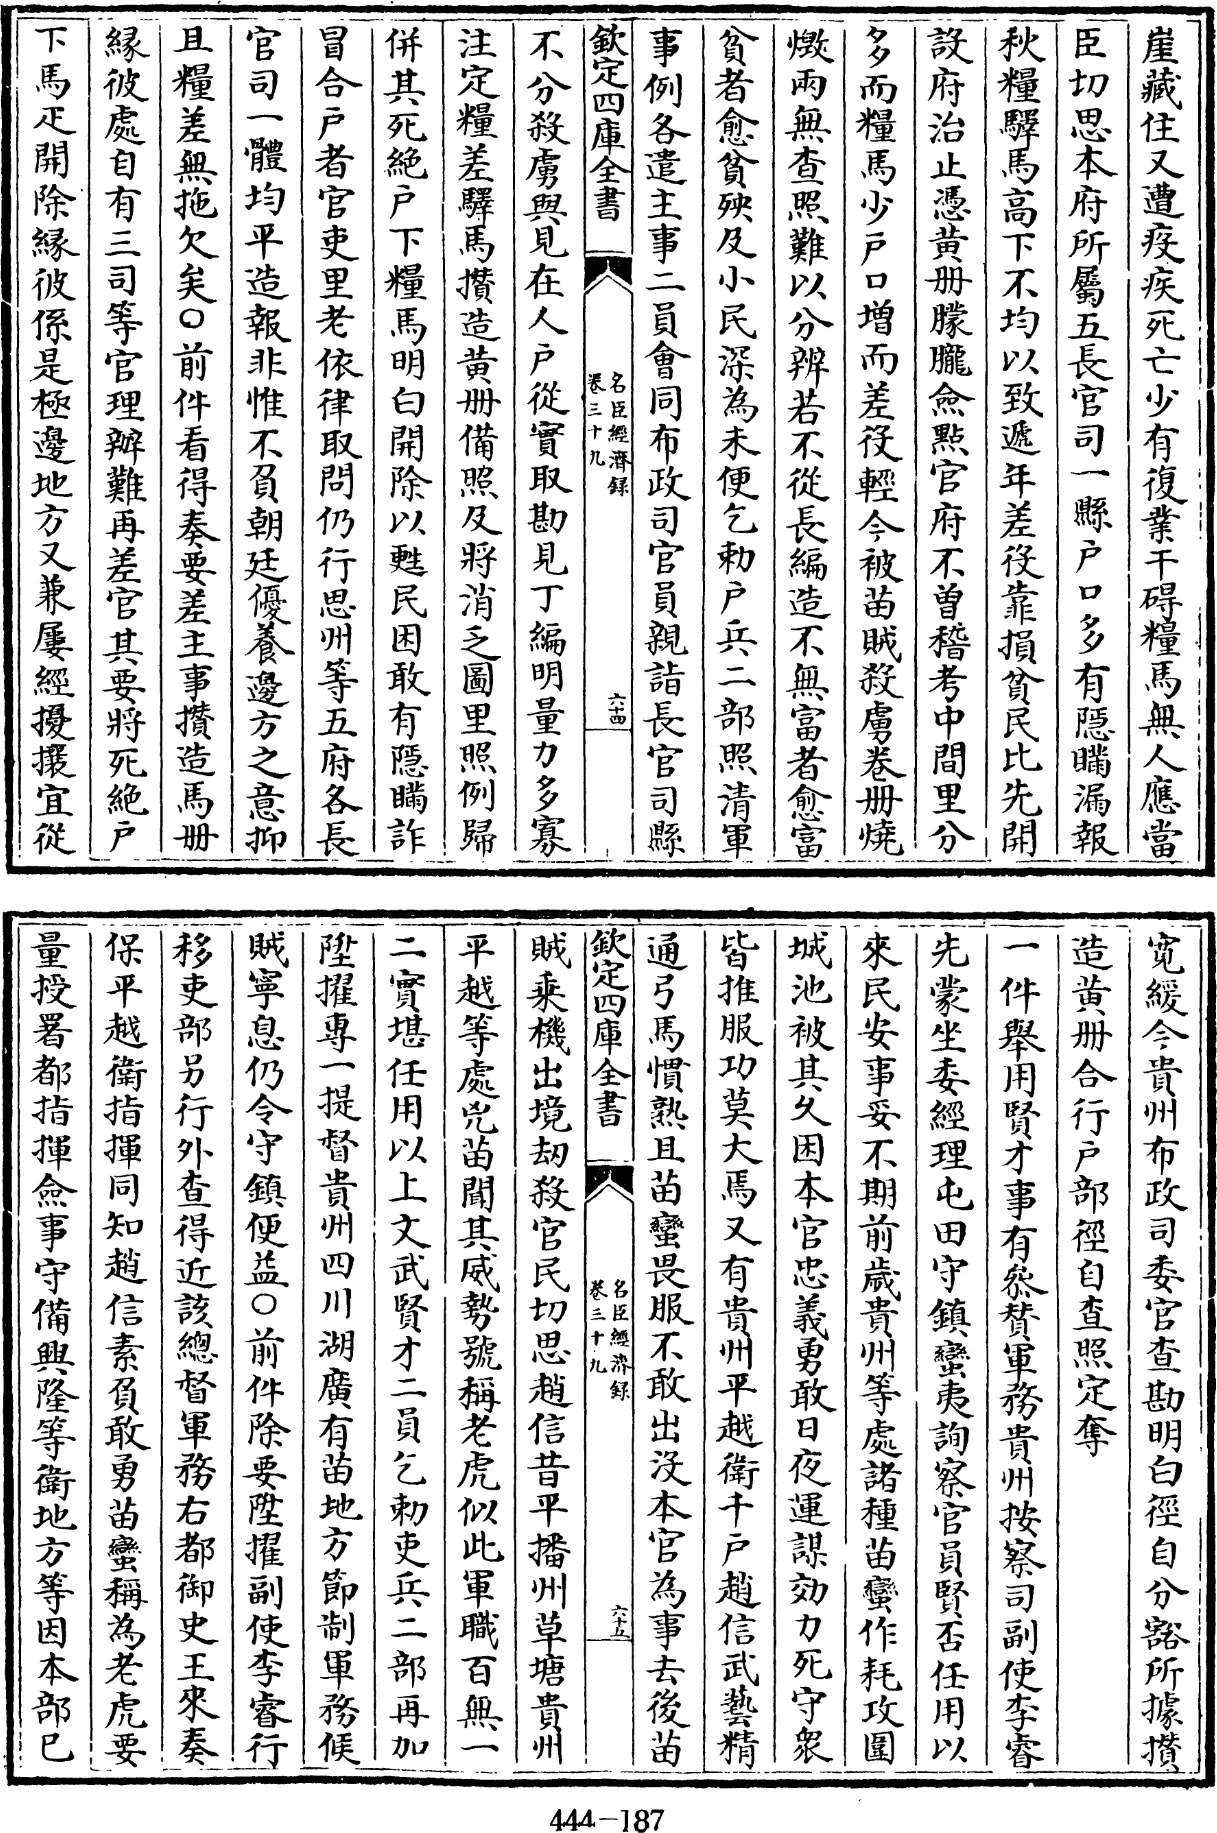 崖藏住又遭疫疾死亡少有復業干碍糧馬無人應當
臣切思本府所屬五長官司一縣户口多有隠瞞漏報
秋糧驛馬高下不均以致遞年差役靠損貧民比先開
設府治止憑黄册朦朧僉點官府不曽稽考中間里分
多而糧馬少户口增而差役輕今被苗賊殺虜卷册燒
燬兩無查照難以分辨若不從長編造不無富者愈富
貧者愈貧殃及小民深為未便乞勅户兵二部照清軍
事例各遣主事二員會同布政司官員親詣長官司縣
欽定四庫全書
名臣經濟録
卷三十九
六十四
不分殺虜與見在人户從實取勘見丁編明量力多寡
注定糧差驛馬攢造黄册備照及將消乏圖里照例歸
併其死絶户下糧馬明白開除以甦民困敢有隠瞞詐
冒合户者官吏里老依律取問仍行思州等五府各長
官司一體均平造報非惟不負朝廷優養邊方之意抑
且糧差無拖欠矣○前件看得奏要差主事攢造馬册
縁彼處自有三司等官理辦難再差官其要將死絶户
下馬疋開除縁彼係是極邊地方又兼屢經擾攘宜從
寛緩今貴州布政司委官查勘明白徑自分豁所據攢
造黄册合行户部徑自查照定奪
一件舉用賢才事有叅賛軍務貴州按察司副使李睿
先蒙坐委經理屯田守鎮蠻夷詢察官員賢否任用以
來民安事妥不期前歲貴州等處諸種苗蠻作耗攻圍
城池被其久困本官忠義勇敢日夜運謀効力死守衆
皆推服功莫大焉又有貴州平越衛千户趙信武藝精
通弓馬慣熟且苗蠻畏服不敢出没本官為事去後苗
欽定四庫全書
名臣經濟録
卷三十九
六十五
賊乘機出境刼殺官民切思趙信昔平播州草塘貴州
平越等處兇苗聞其威勢號稱老虎似此軍職百無一
二實堪任用以上文武賢才二員乞勅吏兵二部再加
陞擢專一提督貴州四川湖廣有苗地方節制軍務候
賊寧息仍令守鎮便益○前件除要陞擢副使李睿行
移吏部另行外查得近該總督軍務右都御史王來奏
保平越衛指揮同知趙信素負敢勇苗蠻稱為老虎要
量授署都指揮僉事守備興隆等衛地方等因本部已
444-187